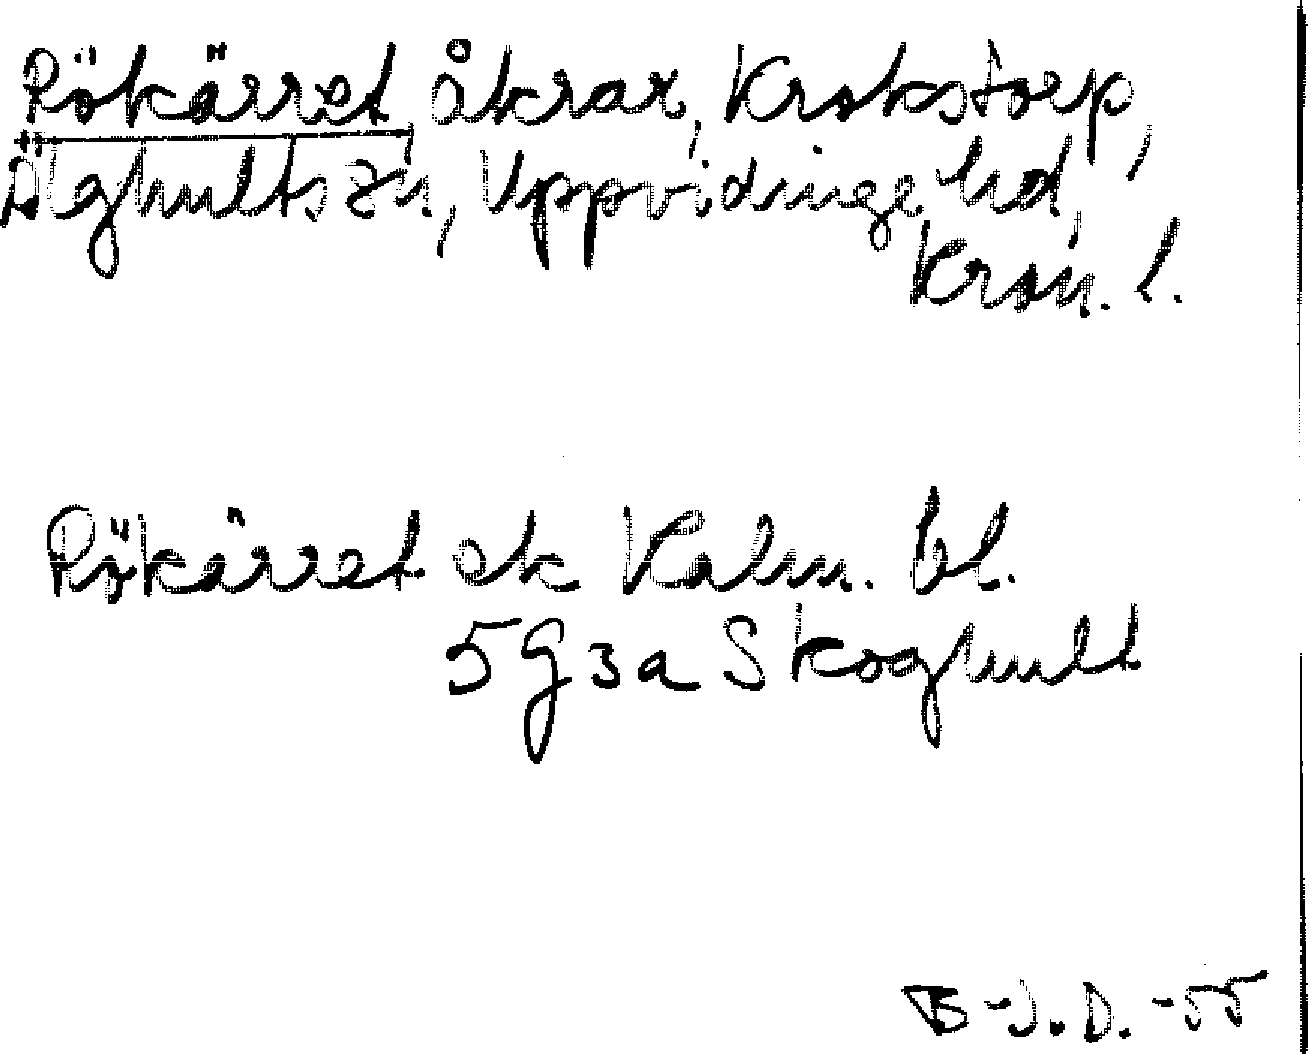 Rökärret åkrar, Krokstorp,
Älghults sn, Uppvidinge hd,
Kron. l.
Rökärret ek Kalm. bl.
5 G 3 a Skoghult
B-J. D. -55